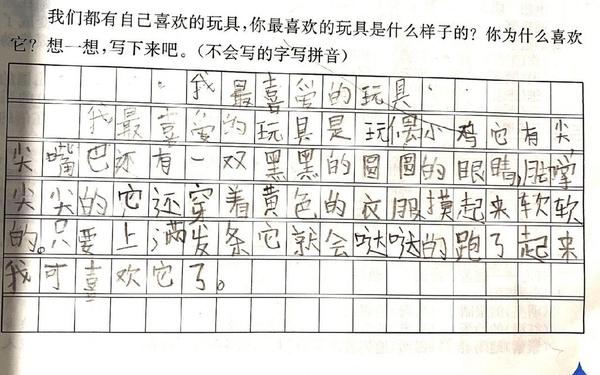 我们都有自己喜欢的玩具,你最喜欢的玩具是什么样子的?你为什么喜欢
它?想一想,写下来吧。(不会写的字写拼音)
我最喜爱的玩具
我最喜爱的玩具是玩偶小鸡它有尖
尖嘴巴还有一双黑黑的圆圆的眼睛,脚掌
尖尖的它还穿着黄色的衣服摸起来软软
的。只要上满发条它就会哒哒的跑了起来
我可喜欢它了。